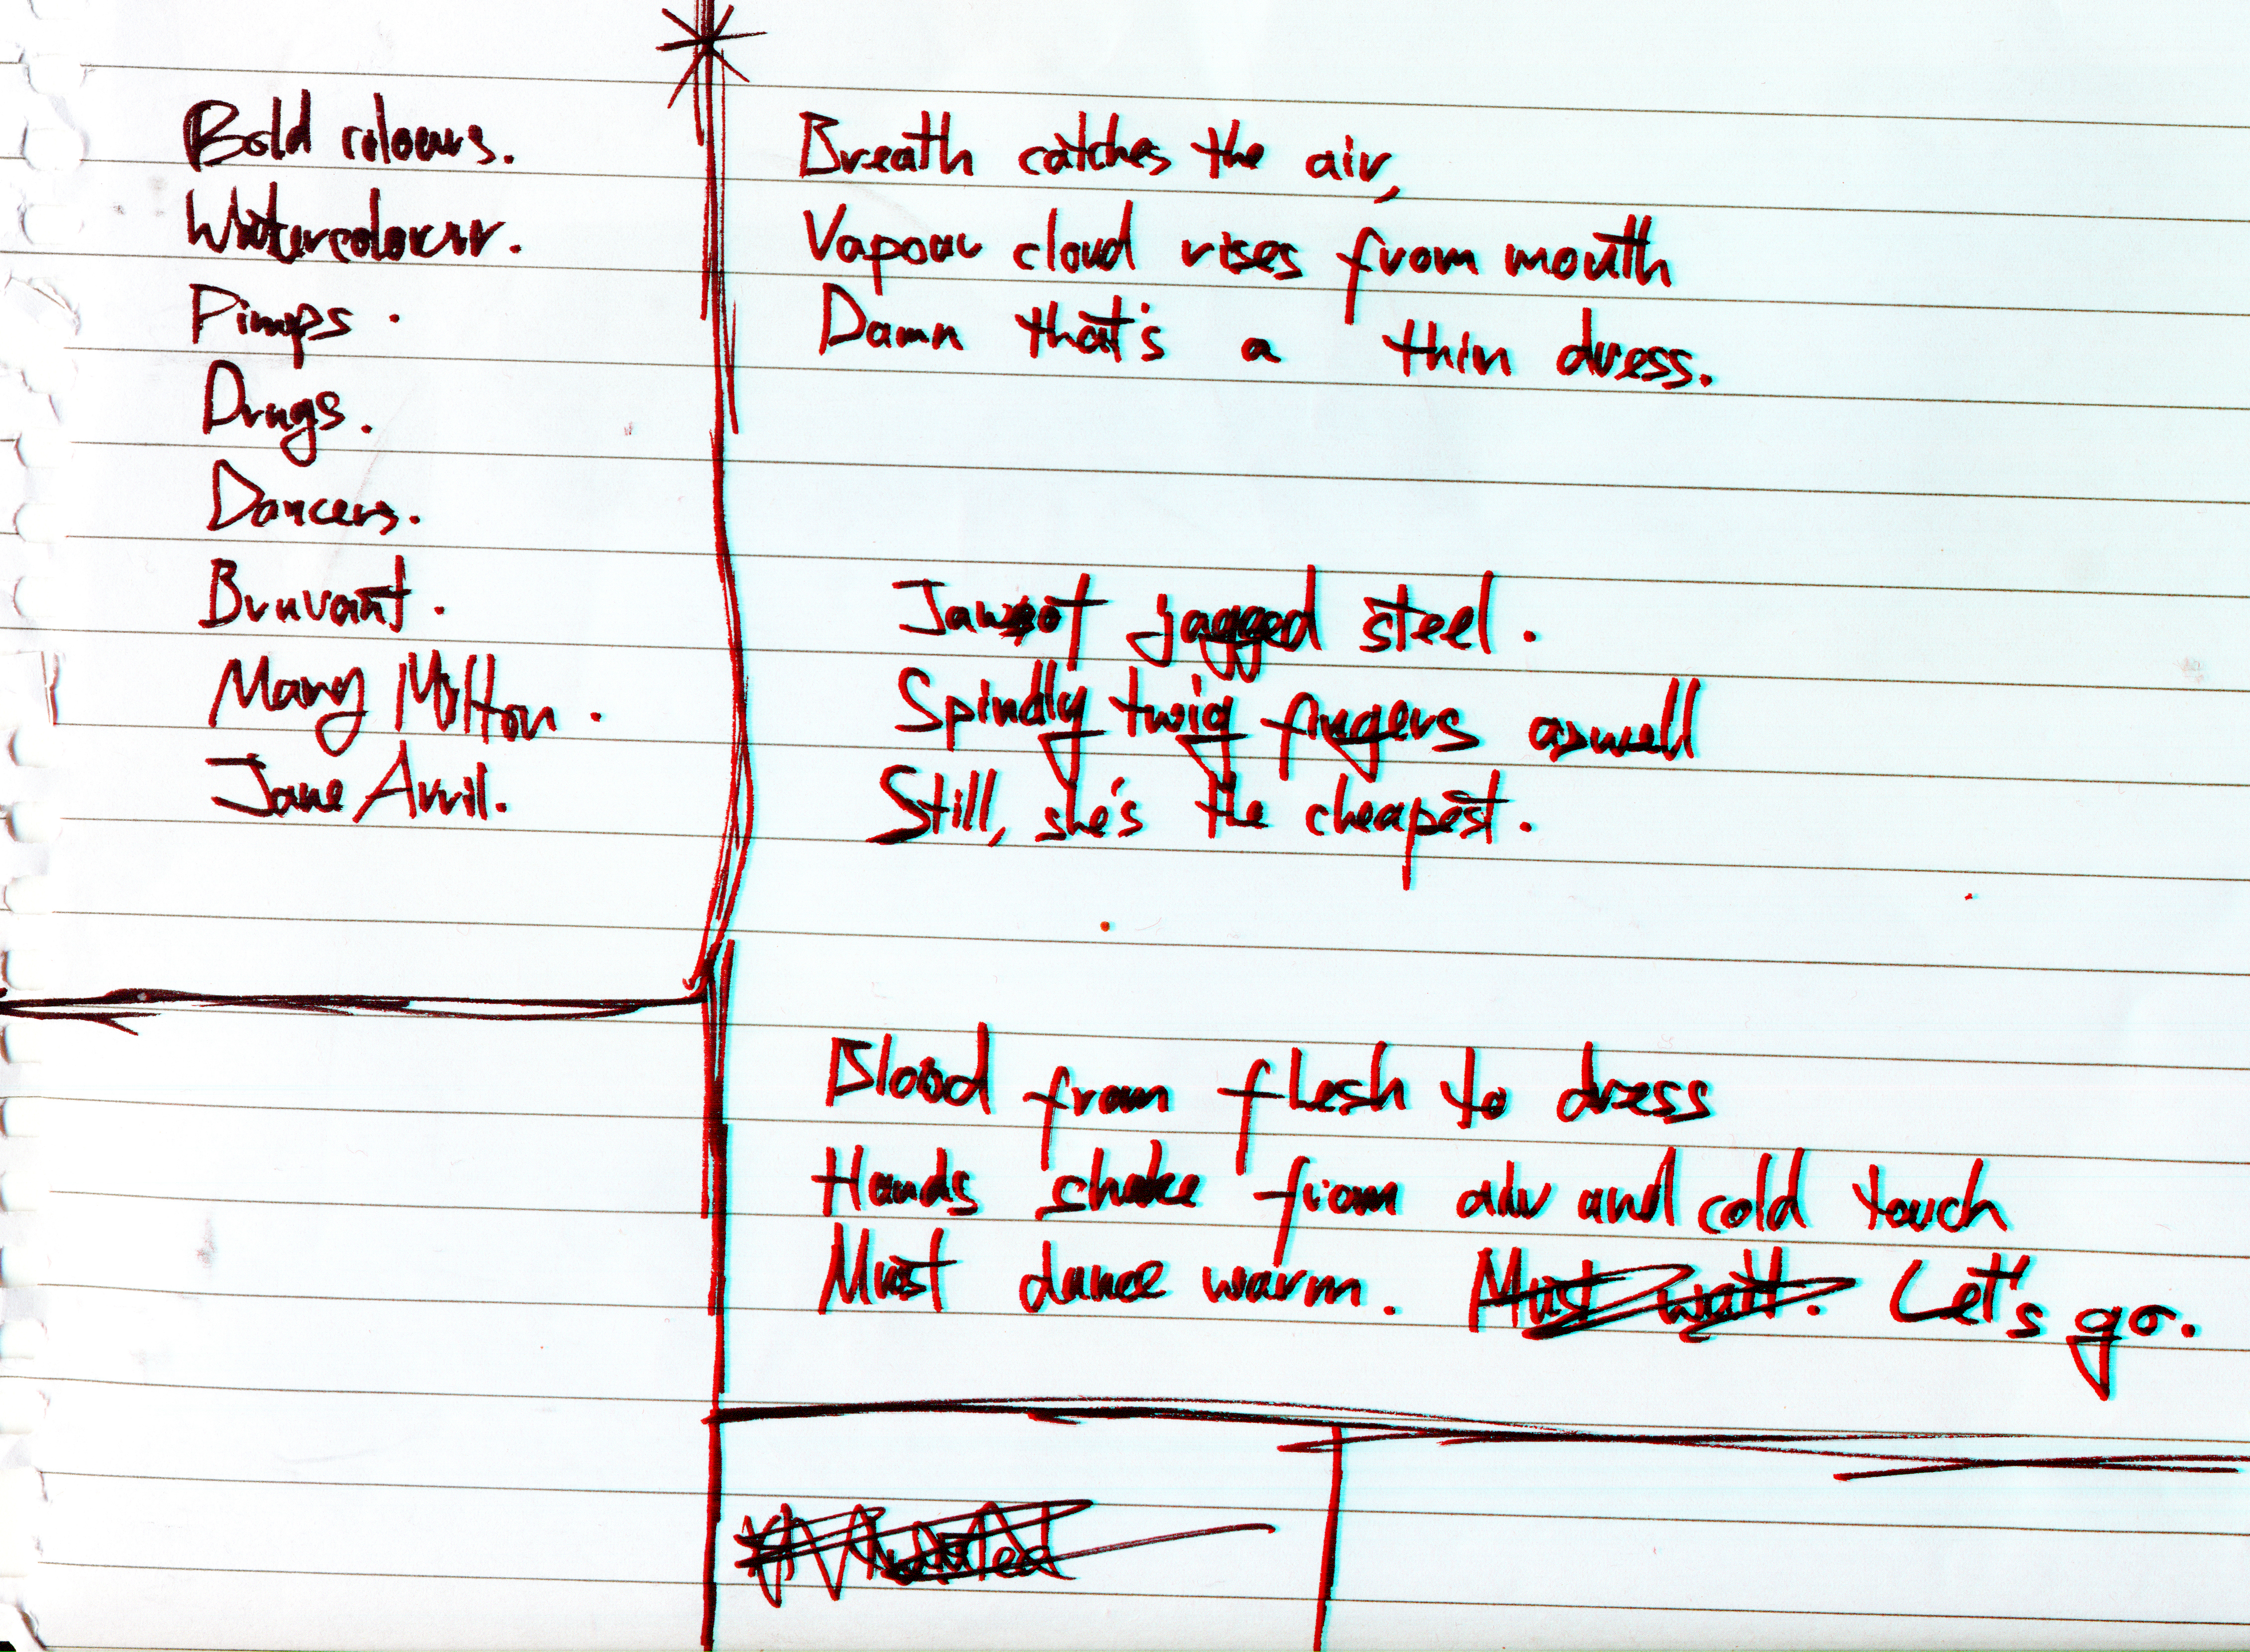 Bold colours.
Watercolour.
Pimps.
Drugs.
Dancers.
Bruvant.
Mary Milton.
Jane Avril.
Breath catches the air,
Vapour cloud rises from mouth
Damn that's a thin dress.
jagged steel.
Spindly twig fingers aswell
Still, she's the cheapest.
Blood from flesh to dress
Hands shake from air and cold touch
Must dance warm. Must wait. Let's go.